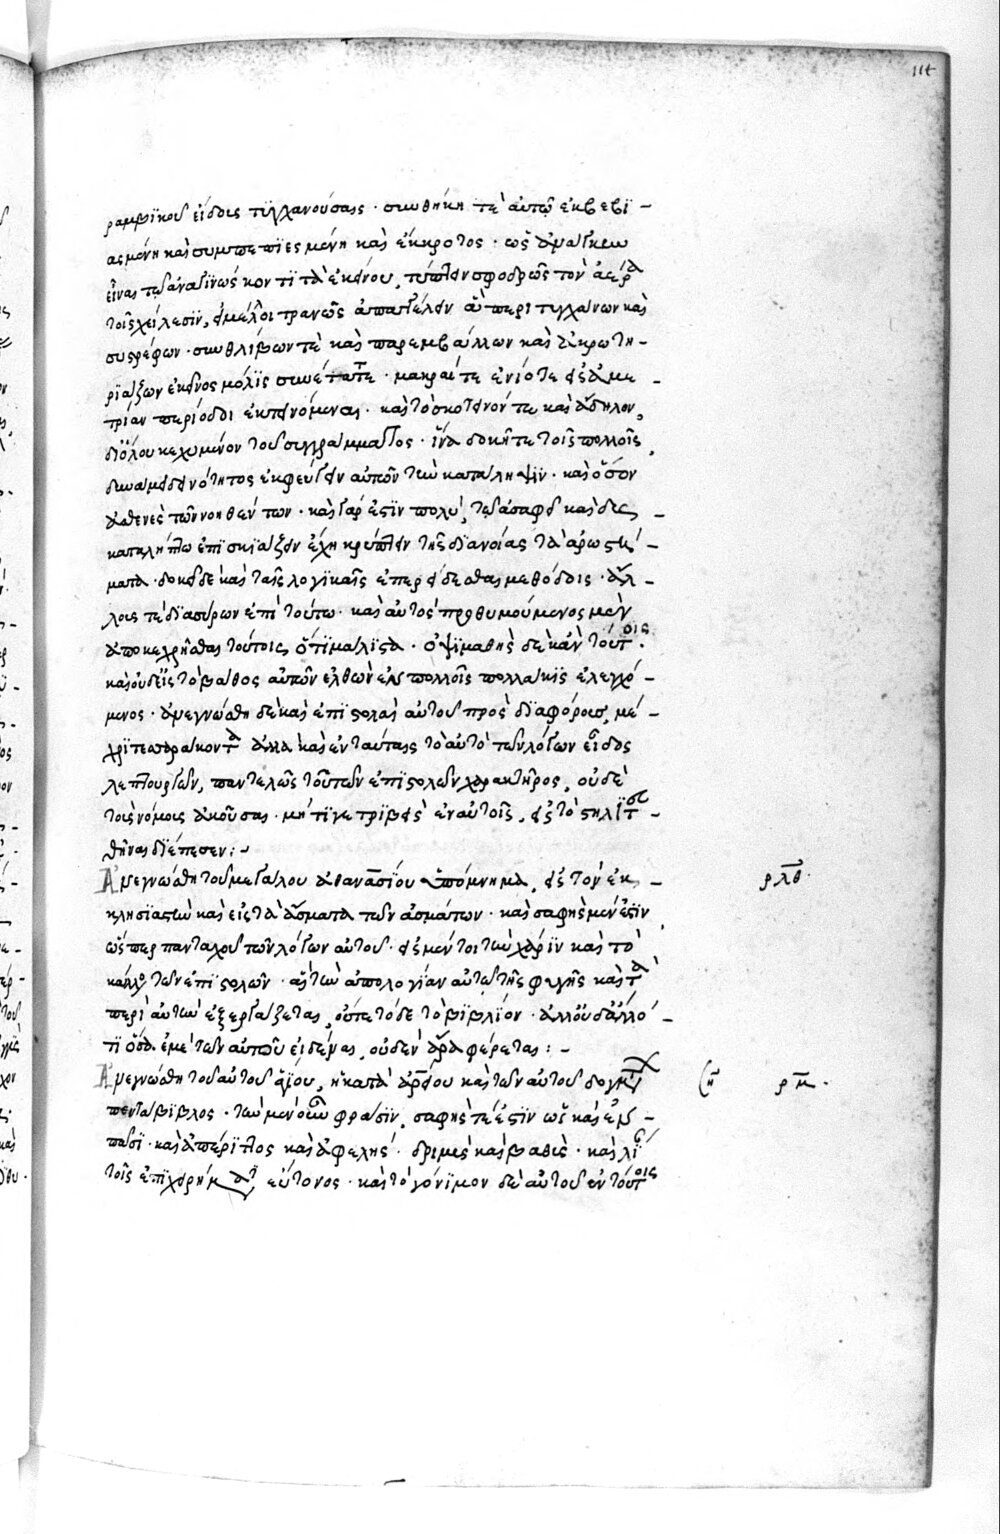 114
ραμβϊκοῦ εἴδους τυγχανούσαις · συνθήκη τὲ αὐτῷ ἐκβεβϊ –
ασμένη καὶ συμπεπϊεσμένη καὶ ἔκκροτος · ὡς ἀνάγκην
εἶναι τῷ ἀναγινώσκοντϊ τὰ ἐκείνου, τύπτειν σφοδρῶς τὸν ἀέρα
τοῖς χείλεσϊν, εἰ μέλλοι τρανῶς ἀπαγγέλειν ἃ περιτυγχάνων καὶ
συστρέφων · συνθλίβων τὲ καὶ παρεμβάλλων καὶ ἀκρωτη –
ρϊάζων ἐκεῖνος μόλϊς συνέταττε · μακραί τε ἐνίοτε εἰς ἀμε –
τρίαν περίοδοι ἐκτεινόμεναι · καὶ τὸ σκοτεινόν τε καὶ ἄδηλον,
διόλου κεχυμένον τοῦ συγγράμματος · ἵνα δοκῇ τε τοῖς πολλοῖς,
δυναμένοτητος ἐκφεύγειν αὐτῶν τὴν κατάληψϊν · καὶ ὅσον
ἀσθενὲς τῶν νοηθέντων · καὶ γάρ ἐστϊν πολύ, τῷ ἀσαφεῖ καὶ δυς –
καταλήπτῳ ἐπισκϊάζειν ἔχῃ κρύπτειν τῆς δϊανοίας τὰ ἀρωστή –
ματα · δοκεῖ δὲ καὶ ταῖς λογϊκαῖς ἐπερείδεσθαι μεθόδοις · ἄλ –
λους τὲ δϊασύρων ἐπὶ τούτῳ · καὶ αὐτὸς προθυμούμενος μὲν
ἀποκεχρῆσθαι τούτοις ὅτϊ μάλϊστα · ὀψϊμαθὴς δὲ κἀν τούτοις ·
καὶ οὐδεὶς τὸ βάθος αὐτῶν ἐλθὼν ἐν πολλοῖς πολλάκϊς ἐλεγχό –
μενος · ἀνεγνώσθη δὲ καὶ ἐπϊστολαὶ αὐτοῦ πρὸς δϊαφόρους, μέ –
χρϊ τεσσαράκοντα ἀλλὰ καὶ ἐν ταύταις τὸ αὐτὸ τῶν λόγων εἶδος
λεπτουργῶν, παντελῶς τοῦ τῶν ἐπϊστολῶν χαρακτῆρος, οὐδὲ
τοὺς νόμους ἀκούσας · μήτϊγε τρϊβεὶς ἐν αὐτοῖς, εἰς τὸ στηλϊτ –
θῆναι δϊέπεσεν : –
Ἀνεγνώσθη τοῦ μεγάλου ἀθανασίου ὑπόμνημα, εἰς τὸν ἐκ –
κλησϊαστὴν καὶ εἰς τὰ ᾄσματα τῶν ᾀσμάτων · καὶ σαφὴς μέν ἐστϊν
ὥσπερ πανταχοῦ τῶν λόγων αὐτοῦ · εἰ μέντοι τὴν χάρϊν καὶ τὸ
κάλλος τῶν ἐπϊστολῶν · ἃς τὴν ἀπολογίαν αὐτῷ τῆς φυγῆς καὶ τὰ
περὶ αὐτὴν ἐξεργάζεται, οὔτε τόδε τὸ βϊβλίον · ἀλλ' οὐδ' ἄλλό –
τϊ ὅσα ἐμὲ τῶν αὐτοῦ εἰδέναι, οὐδὲν ἄρα φέρεται : –
ρλθ ·
Ἀνεγνώσθη τοῦ αὐτοῦ ἁγίου, ἡ κατὰ ἀρείου καὶ τῶν αὐτοῦ δογμάτων
ση
ρμ ·
πεντάβϊβλος · τὴν μὲν οὖν φράσϊν, σαφής τέ ἐστϊν ὡς καὶ ἐν –
πᾶσϊ · καὶ ἀπέρϊττος καὶ ἀφελής · δριμὺς καὶ βαθὺς · καὶ λϊ
τοῖς ἐπϊχειρήμασϊ, εὔτονος · καὶ τὸ γόνϊμον δὲ αὐτοῦ ἐν τούτοις